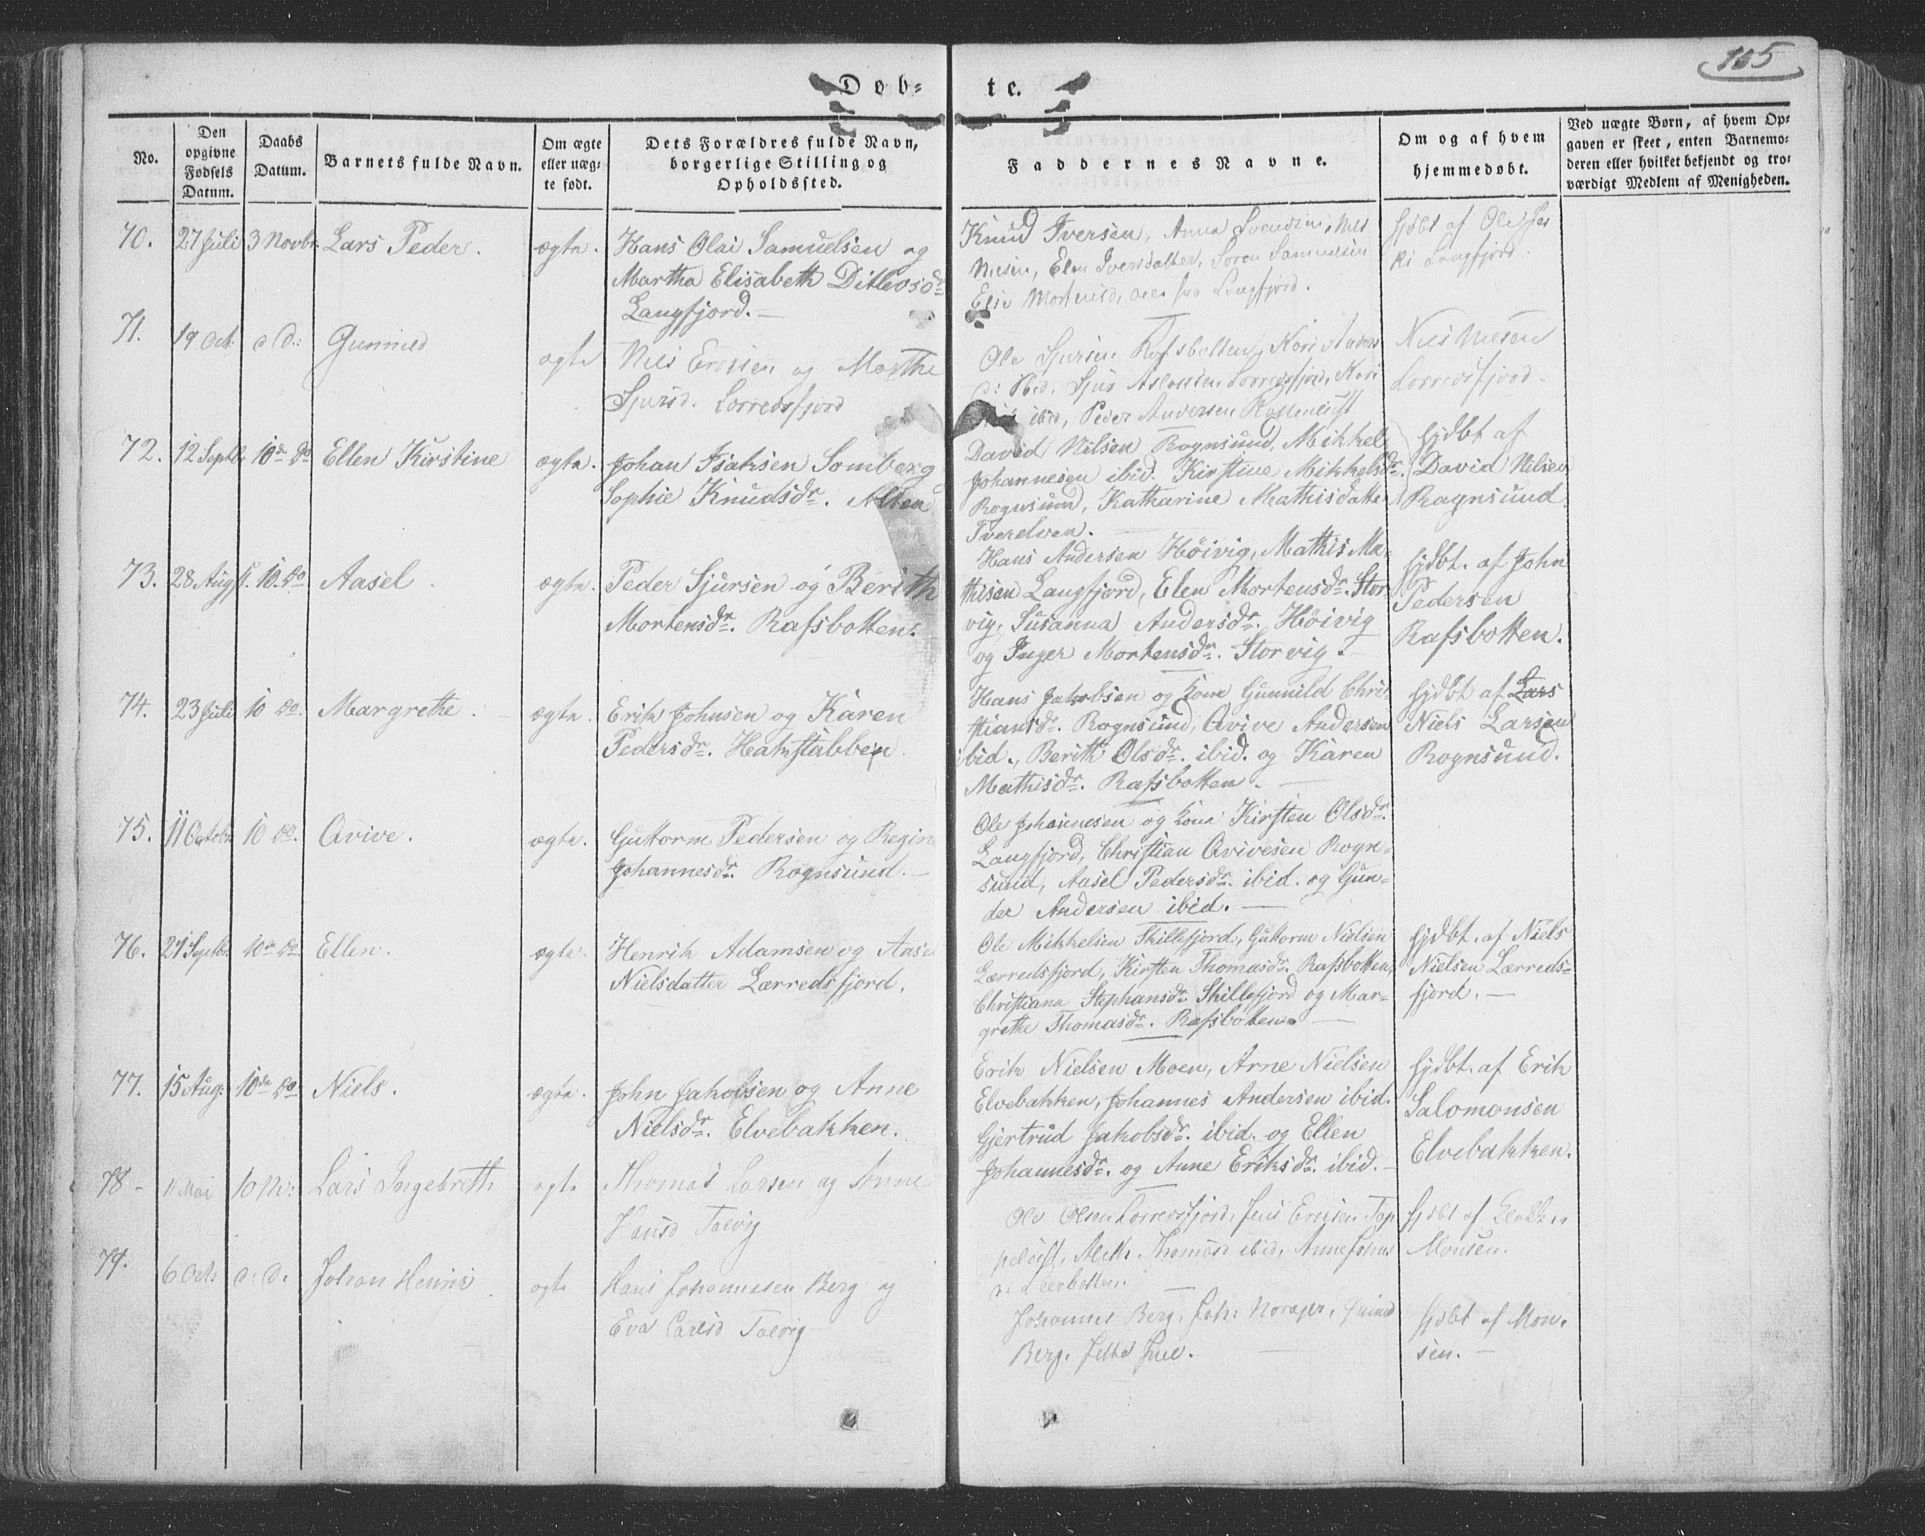 105
Døb- te.
No.
Den opgivne Fødsels Datum.
Daabs Datum.
Barnets fulde Navn.
Om ægte eller uæg- te født.
Dets Forældres fulde Navn, borgerlige Stilling og Opholdssted.
Faddernes Navne.
Om og af hvem hjemmedøbt.
Ved uægte Børn, af hvem Op-
gaven er skeet, enten Barnemo-
deren eller hvilket bekjendt og tro-
værdigt Medlem af Menigheden.
70. 27 Juli 3 Novbr Lars Peder. ægte. Hans Olai Samuelsen og
Martha Elisabeth Ditlevsdr
Langfjord.
Knud Iversen, Anna Svendsen, Nils
Nielsen, Elen Iversdatter, Søren Samuelsen
Elie Mortensd, alle fra Langfjord.
hjdbt af Ole
Langfjord.
71. 19 Oct. d. Gunnild ægte Nils Ericsen og Marthe
Sjursd. Lorredsfjord
Ole Sjursen Rafsbotten, Kari Anders
ibid. Sjur Aslaksen Lorredsfjord, Kari
ibid, Peder Andersen
Niels Nielsen
Lorredsfjord.
72. 12 Septbr 10de do Ellen Kirstine ægte. Johan Isaksen Somberg
Sophie Knudsdr. Alten
David Nilsen Rognsund, Mikkel
Johannesen ibid. Kirstine Mikkelsdr.
Rognsund, Katharine Mathisdatter
Tverelven.
hjdbt af
David Nilsen
Ragnsund
73. 28 Augst. 10. do Aasel ægte. Peder Sjursen og Berith
Mortensdr. Rafsbotten.
Hans Andersen Höivig, Mathis Ma-
thisen Langfjord, Elen Mortensdr. Stor-
vig, Susanna Andersdr. Höivig
og Inger Mortensdr. Storvig.
hjdbt. af John
Pedersen
Rafsbotten.
74. 23 Juli 10 do. Margrethe. ægte. Erik Johnsen og Karen
Pedersdr. Hakstabben.
Hans Jakobsen og Kone Gunnild Chris-
tiansdr. Rognsund, Avive Andersen
ibid., Berith Olsdr. ibid. og Karen
Mathisdr. Rafsbotten.
hjdbt af Lars
Niels Larsen
Rognsund.
75. 11 Octobr 10 do. Avive. ægte. Guttorm Pedersen og Regine
Johannesdr. Rognsund.
Ole Johannesen og Kone Kirsten Olsdr.
Langfjord, Christian Avivesen Rogn-
sund, Aasel Pedersdr. ibid. og Gun-
der Andersen ibid.
76. 21 Septbr. 10de do. Ellen. ægte. Henrik Adamsen og Aase
Nielsdatter Lærredsfjord.
Ole Mikkelsen Skillefjord, Guttorm Nielsen
Lærredsfjord, Kirsten Thomasdr. Rafsbotten,
Christiana Stephansdr. Skillefjord og Mar-
grethe Thomasdr. Rafsbotten.
hjdbt. af Niels
Nielsen Lærreds-
fjord.
77. 15 Aug. 10de do Niels. ægte. John Jakobsen og Anne
Nielsdr. Elvebakken.
Erik Nielsen Moen, Arne Nielsen
Elvebakken, Johannes Andersen ibid.
Gjertrud Jakobsdr. ibid. og Ellen
Johannesdr. og Anne Eriksdr. ibid.
hjdbt. af Erik
Salomonsen
Elvebakken.
78 11 Mai 10 Lars Ingebreth ægte Thomas Larsen og Anne
Hansd Talvig
Ole Olsen Lorredsfjord, Jens Ericsen Top
Thomasd ibid, Anne Johns
hjdbt af Klokker
Monsen.
79. 6 Oct. d. d. Johan Henrik ægte Hans Johannessen Berg og
Eva Carlsd Talvig
Johannes Berg, Joh:
Berg, Juel.
hjdbt af Mon-
sen.